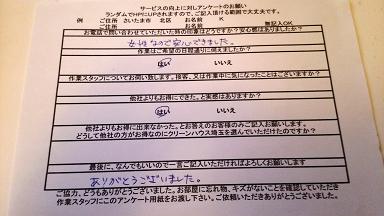 サービスの向上に対しアンケートのお願い
ランダムでHPにUPされますので、ご記入頂ける範囲で大丈夫です。
例 ご住所 さいたま市 北区 お名前 K 無記入OK
ご住所 お名前
お電話で問い合わせていただいた時の印象はどうですか？安心感はありましたか？
女性なので安心できました。
作業はご希望の日程通りに伺えましたか？
はい いいえ
作業スタッフについてお伺い致します。接客、又は作業中に気になったことはございますか？
他社よりもお得にできた。と実感はありますか？
はい いいえ
他社よりもお得に出来なかった。とお答えのお客様のみご記入お願いします。
どうして他社の方がお得なのにクリーンハウス埼玉を選んでいただけたのですか？
最後に、なんでもいいので一言ご記入いただければよろしくお願いします
ありがとうございました。
ご協力、どうもありがとうございました。お部屋に忘れ物、キズがないことを確認していただき
作業スタッフにこのアンケート用紙をお渡し下さい。ご依頼いただきありがとうございました。